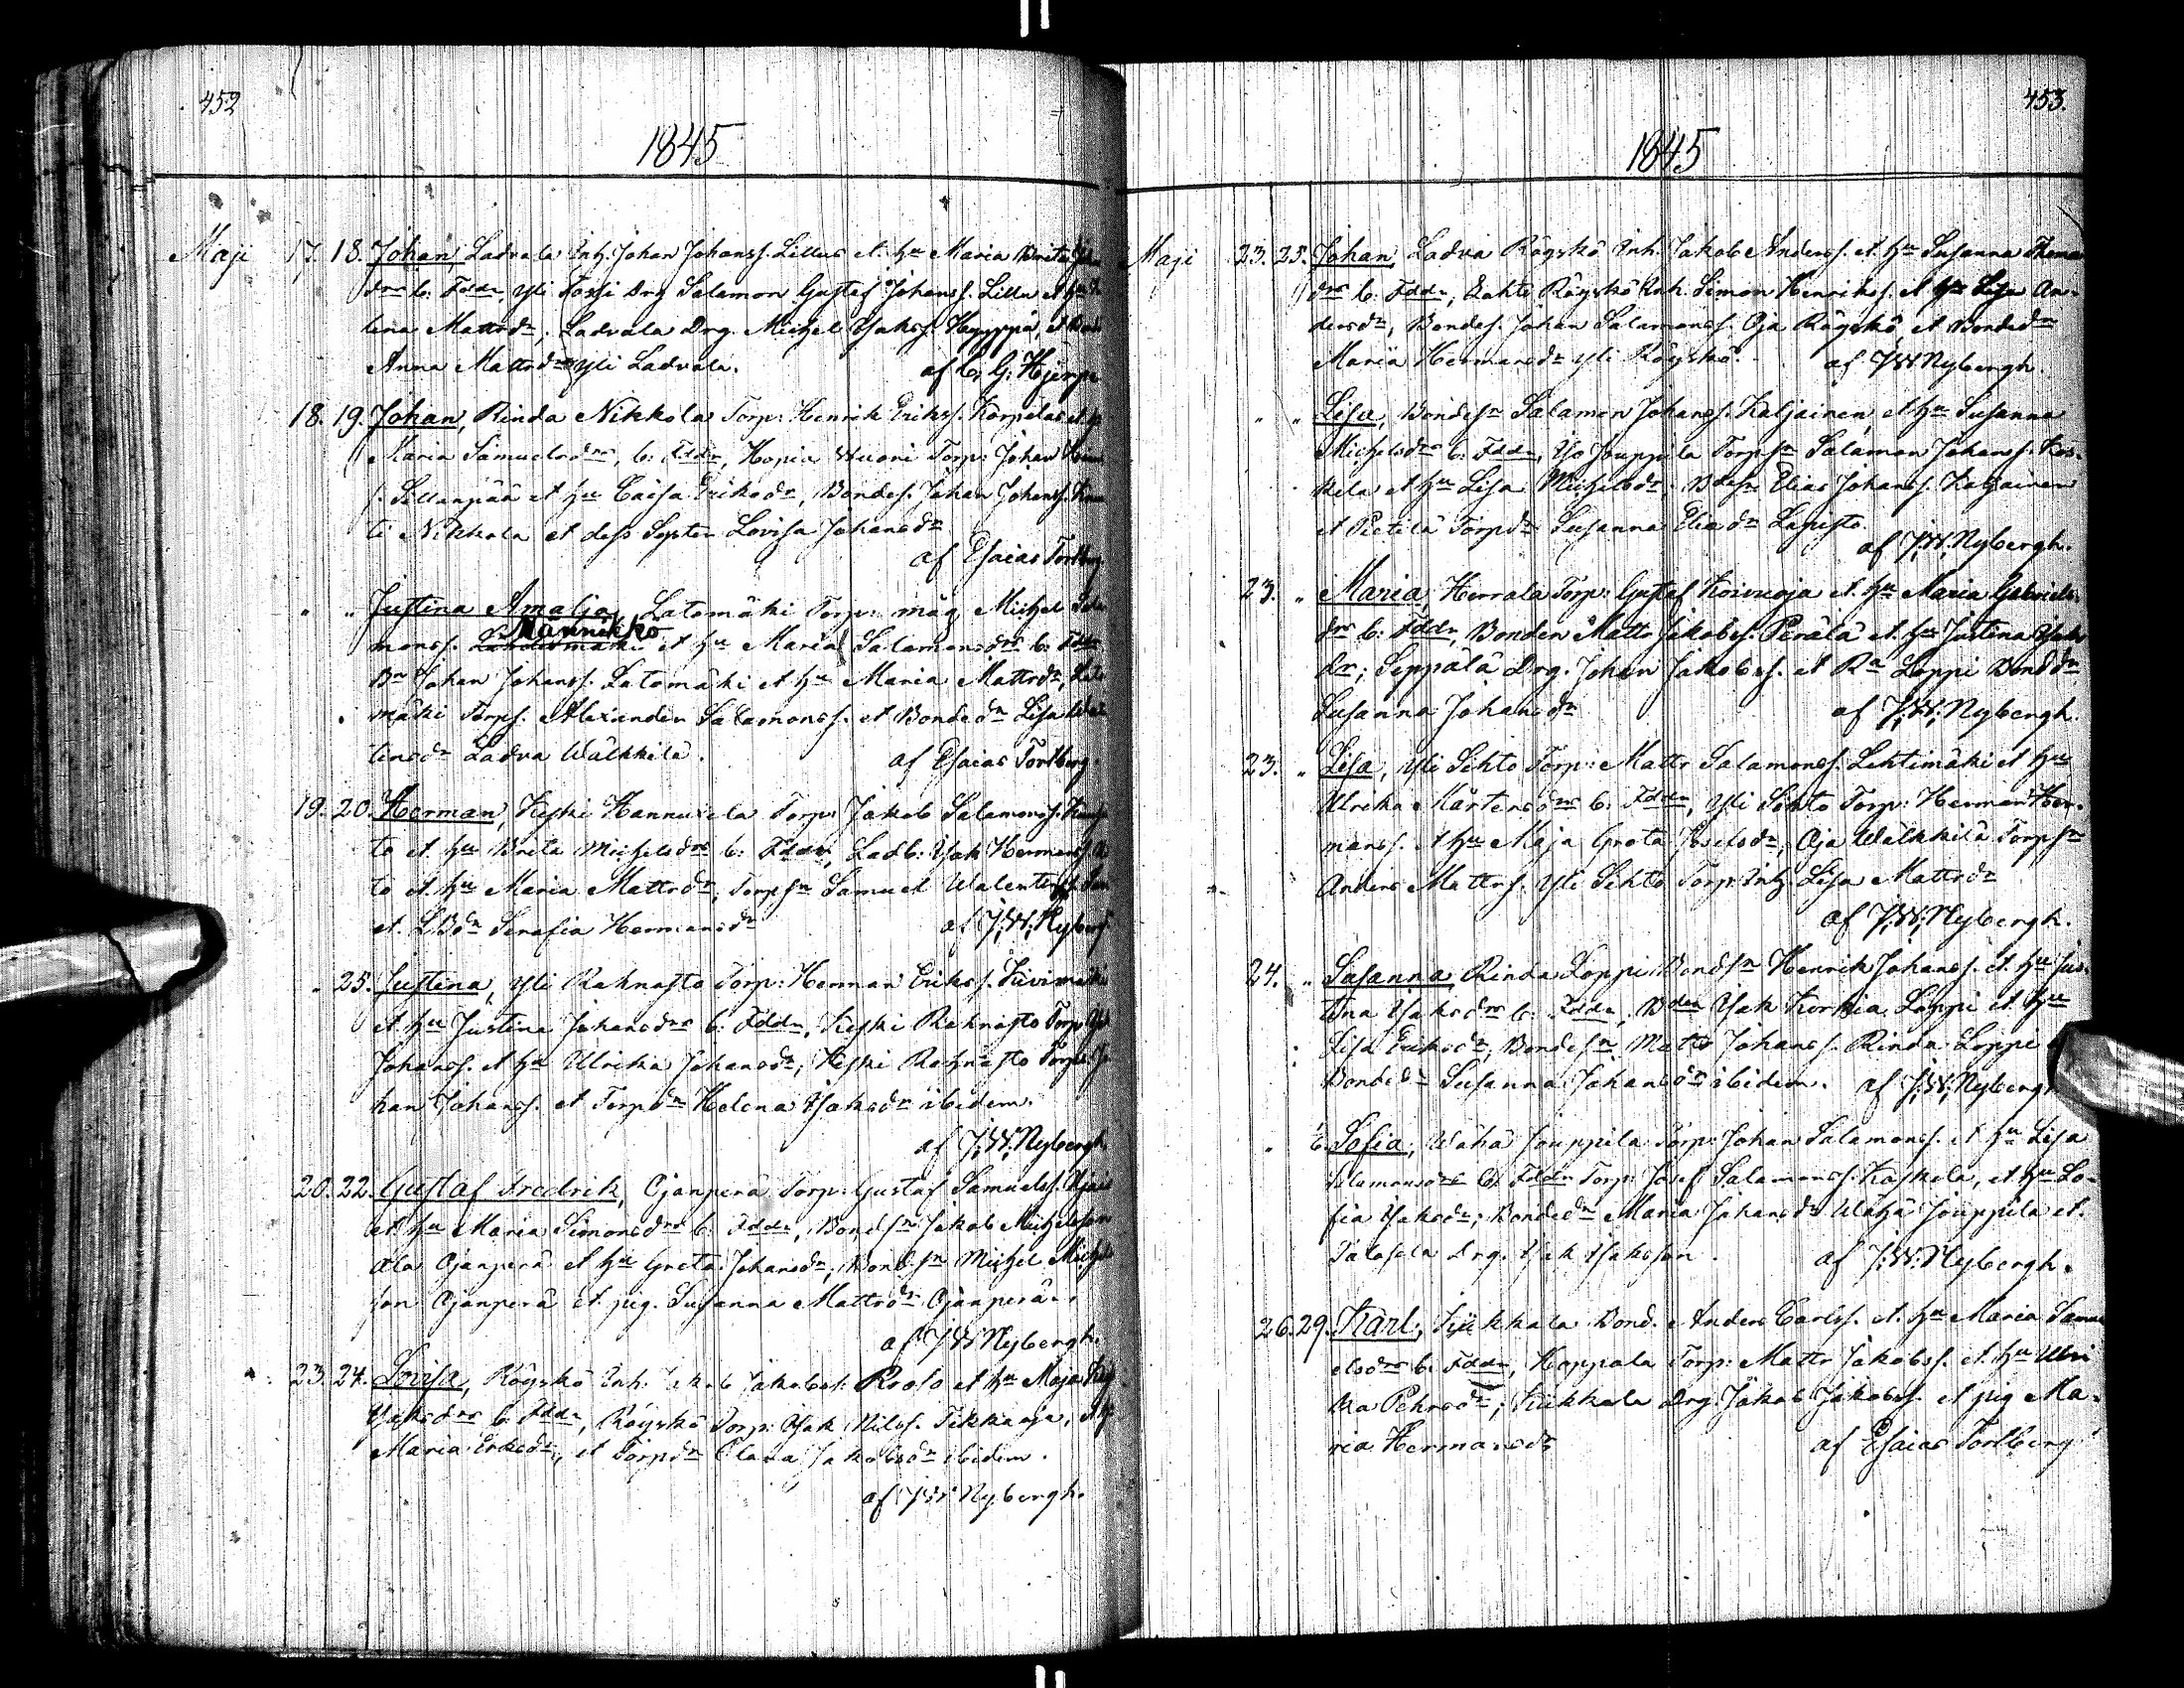 452
1845
Maji 17. 18. Johan, Ladvala Inh. Johan Johanss. Lillus et. hu Maria Brita Joh
dr b: Fddr, Yli Fossi Drg Salamon Gustaf Johanss. Lillu et hu
lina Mattsdr, Ladvala Drg. Michel Isakss. Hyyppä, et
Anna Mattsdr Yli Ladvala. af C. G: Hjerpe
18. 19. Johan, Rinda Nikkola Torp: Henrik Erikss. Korpelas et
Maria Samuelsdr, b: Fddr, Hopia Wuori Torp: Johan
s. Sillanpää et hu Caisa Eriksdr, Bondes. Johan Johanss.
ti Nikkola et dess Syster Lovisa Johansdr
af Esaias Torlberg
" " Justina Amalja, Latomäki Torp: måg Michel Sala
Männikkö
monss. et hu Maria Salamonsdr b: Fddr
Bn Johan Johanss. Latomäki et hu Maria Mattsdr, Lato
mäki Torps. Alexander Salamonss. et Bondedr Lisa
linsdr Ladva Wälkkilä. af Esaias Torlberg.
19. 20. Herman, Keski Hannuxela Torp: Jakob Salamonss.
to et hu Brita Michelsdr b: Fddr, Ladb: Isak Hermanss
to et. hu Maria Mattsdr, Torpsn Samuel Walentinss.
et. LBdr Serafia Hermansdr af J:W:Nybergh
" 25. Justina, Yli Rahnasto Torp: Herman Erikss. Kivimäki
et hu Justina Johansdr b: Fddr, Keski Rahnasto Torp
Johanss. et hu Ulrika Johansdr, Keski Rahnasto Torps Jo
han Johanss. et Torpdr Helena Isaksdr ibidem.
af J:W:Nybergh
20. 22. Gustaf Fredrik, Ojanperä Torp: Gustaf Samuelss.
et hu Maria Simonsdr b: Fddr, Bondsn Jakob Michelsson
Ala Ojanperä et hu Greta Johansdr, Bondsn Michel Michels
son Ojanperä et pig. Susanna Mattsdr Ojanperä.
af J:W:Nybergh.
23. 24. Lovisa, Röyskö Inh. Jakob Jakobss. Roolo et hu Maja
Isaksdr b: Fddr, Röyskö Torp: Isak Nilss. Tikkaoja, et
Maria Eriksdr, et Torpdr Clara Jakobsdr ibidem.
af J:W:Nybergh.
453.
1845
Maji 23. 25. Johan, Ladvia Röyskö Inh. Jakob Anderss. et. hu Susanna Thomas
dr b: Fddr, Röyskö Inh. Simon Henrikss. et hu Lisa An-
dersdr, Bondes. Johan Salamonss. Oja Röyskö et Bondedr
Maria Hermansdr Yli Röyskö. af J:W:Nybergh.
" " Lisa, Bondesn Salamon Johanss. Kaljainen, et hu Susanna
Michelsdr b: Fddr, Iso Jouppila Torpsn Salamon Johanss. Kos-
kela et hu Lisa Michelsdr, Bdesn Elias Johanss. Kaljainen
et Pietilä Torpdr Susanna Eliadr Lapisto.
af J:W:Nybergh.
23. " Maria, Herrala Torp: Gustaf Koivuoja et. hu Maria Gabriels-
dr b: Fddr, Bonden Matts Jakobss. Perälä et. hu Justina Isaks
dr; Seppälä Drg. Johan Jakobss. et Ra Loppi Bonddr
Susanna Johansdr af J:W:Nybergh.
23. " Lisa, Yli Sihto Torp: Matts Salamonss. Lehtimäki et hu
Ulrika Mårtensdr b: Fddr, Yli Sihto Torp: Herman Her-
manss. et hu Maja Greta Josefsdr, Oja Wälkkilä Torpsn
Anders Mattss. Yli Sihto Torp: Inh Lisa Mattsdr
af J:W:Nybergh.
24. " Susanna, Rinda Loppi Bondsn Henrik Johanss. et. hu Jus-
tina Isaksdr b: Fddr, Bden Isak Korkia Loppi et hu
Lisa Eriksdr, Bondesn Matts Johanss. Rinda Loppi
Bondedr Susanna Johansdr ibidem. af J:W:Nybergh
" Sofia, Wähä Jouppila Torp: Johan Salamonss. et hu Lisa
Salamonsdr b: Fddr Torp: Josef Salamonss. Koskela, et hu So-
fia Isaksdr; Bondedr Maria Johansdr Wähä Jouppila et.
Drg. Isak Isaksson. af J:W:Nybergh.
26. 29. Karl, Kükkala Bond. Anders Carlss. et. hu Maria Samu
elsdr b: Fddr, Hoppala Torp: Matts Jakobss. et. hu Ulri
ka Pehrsdr; Kükkala Drg: Jakob Jakobss. et pig Ma-
ria Hermansdr af Esaias Torlberg